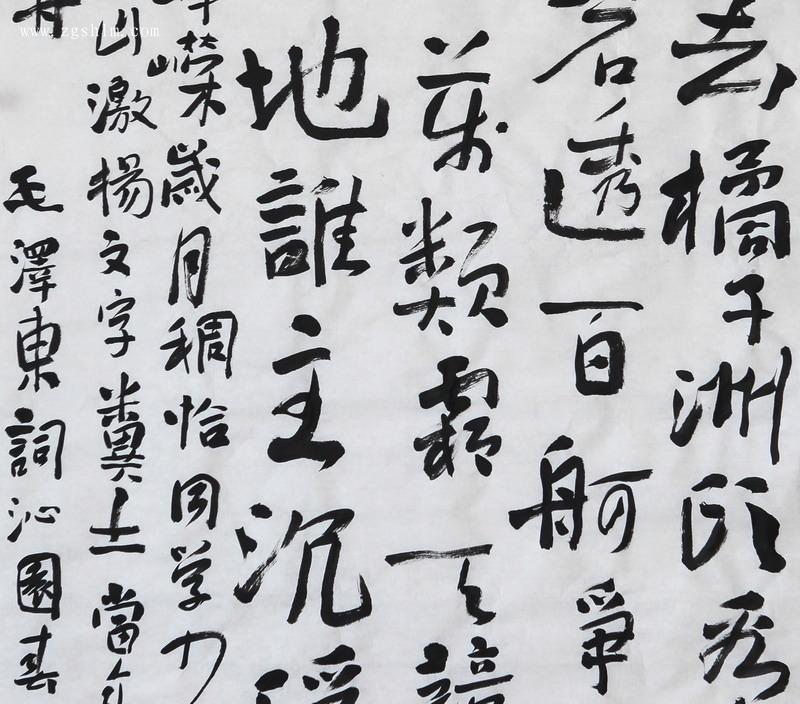 www.zgshlm.com
去橘子洲頭看
碧透百舸爭
萬類霜天競
地誰主沉浮
嶸歲月稠恰同学少
山激揚文字糞土當年
舟
毛澤東詞沁園春